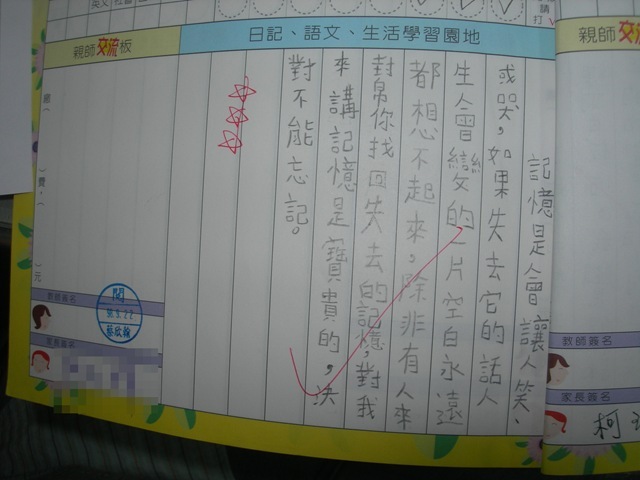 日記、語文、生活學習園地
記憶是會讓人笑、
或哭,如果失去它的話人
生會變的一片空白永遠
都想不起來,除非有人來
幫你找回失去的記憶,對我
來講記憶是寶貴的,決
對不能忘記。
親師交流板
費:
元
教師簽名
閱
家長簽名
親師交流
教師簽名
家長簽名
柯